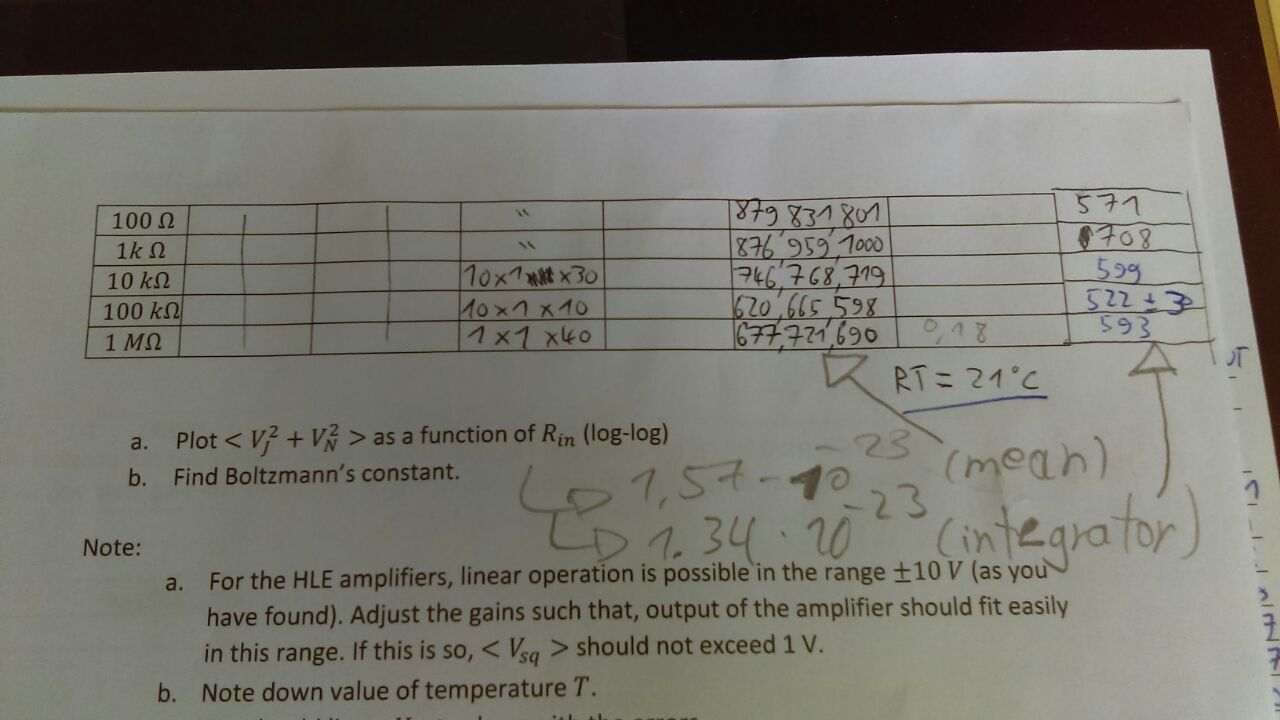 100 Ω " 879, 831, 801 571
1k Ω " 876, 959, 1000 708
10 kΩ 10x1 x30 746, 768, 719 599
100 kΩ 10x1 x10 620, 665, 598 522 ± 3
1 MΩ 1x1 x40 677, 721, 690 0,18 593
RT = 21°C
a. Plot < V_J^2 + V_N^2 > as a function of R_in (log-log)
b. Find Boltzmann's constant.
1,57 - 10^-23 (mean)
1.34 · 10^-23 (integrator)
Note:
a. For the HLE amplifiers, linear operation is possible in the range ±10 V (as you
have found). Adjust the gains such that, output of the amplifier should fit easily
in this range. If this is so, < V_sq > should not exceed 1 V.
b. Note down value of temperature T.